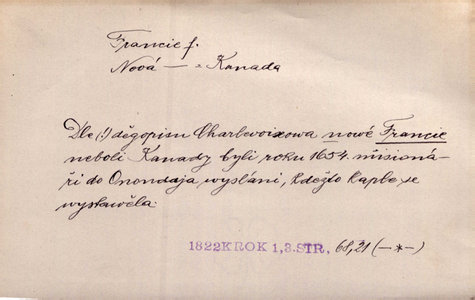 Francie f.
Nová — = Kanada
Dle (!) děgopisu Charlevoixowa nowé Francie
neboli Kanady byli roku 1654. misioná-
ři do Onondaja wysláni, kdežto kaple se
wystawěla.
1822KROK 1,3.STR, 68,21 (—*—)